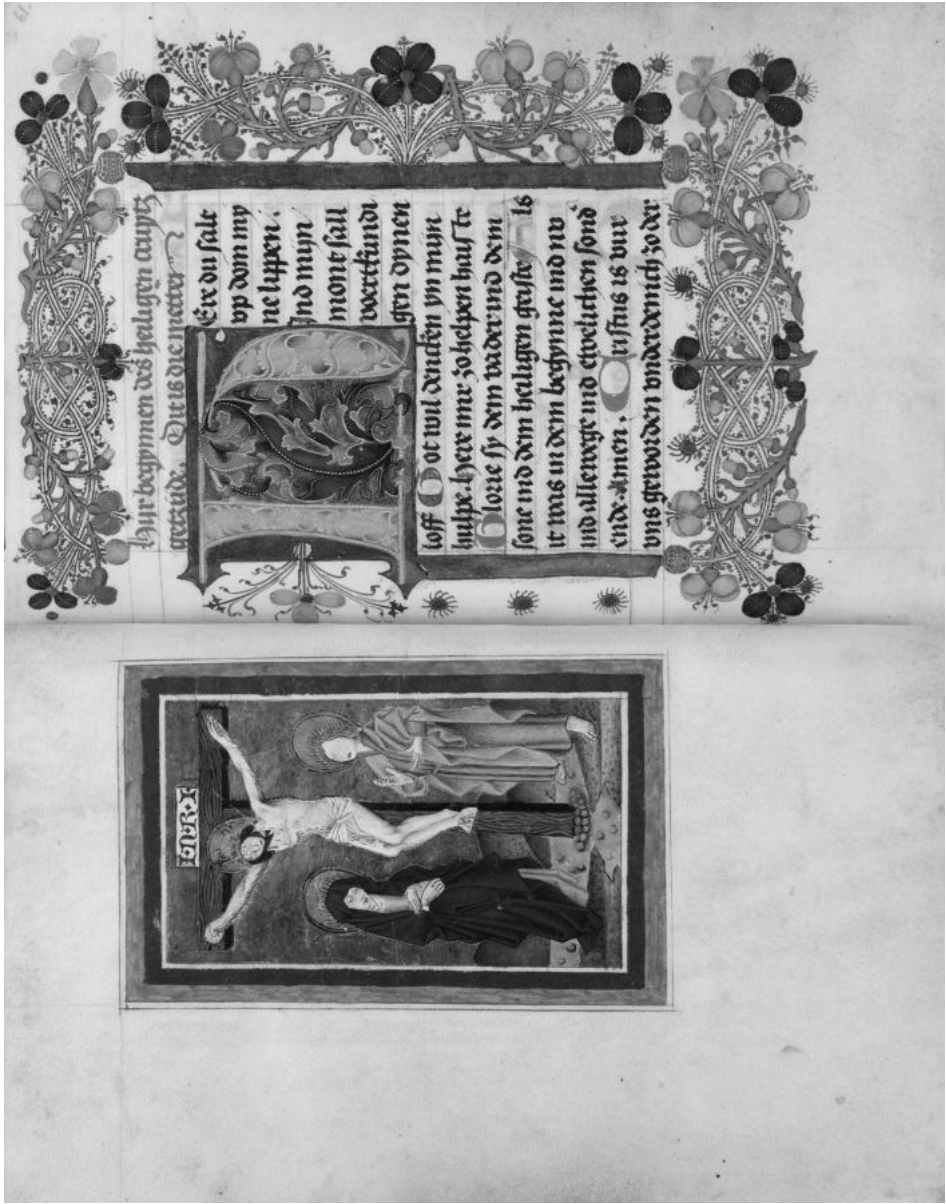 INRI
hyr begynnen des heiligen cruytz
getzijde. Dit is die metten
HEre du salt
vp doin my
ne lyppen.
Ind mijn
mont sall
verkundi
gen dynen
loff Got wil dencken yn mijn
hulpe. here mir zo helpen haiste
Glorie sy dem vader ind dem
sone ind dem heiligen geiste Als
it was in dem begynne ind nv
ind allewege ind ewelichen sond
ende. Amen. Cristus is vur
vns geworden vnderdenich zo der